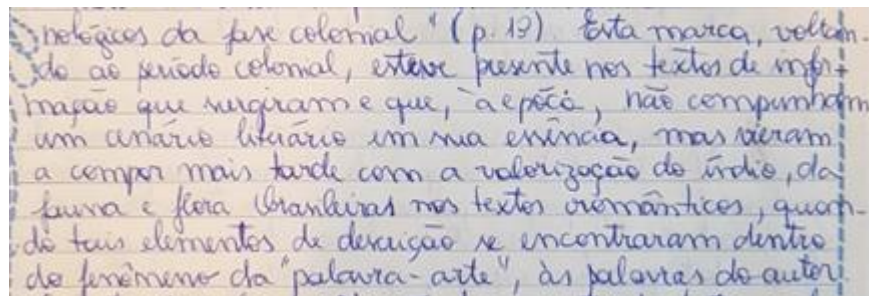 nológicos da fase colonial" (p.19) Esta marca, voltan-
do ao período colonial, esteve presente nos textos de infor-
mação que surgiram e que, à época, não compunham
um cenário literário em sua essência, mas vieram
a compor mais tarde com a valorização do índio, da
fauna e flora brasileiras nos textos românticos, quan-
do tais elementos de descrição se encontraram dentro
do fenômeno da "palavra-arte", às palavras do autor.